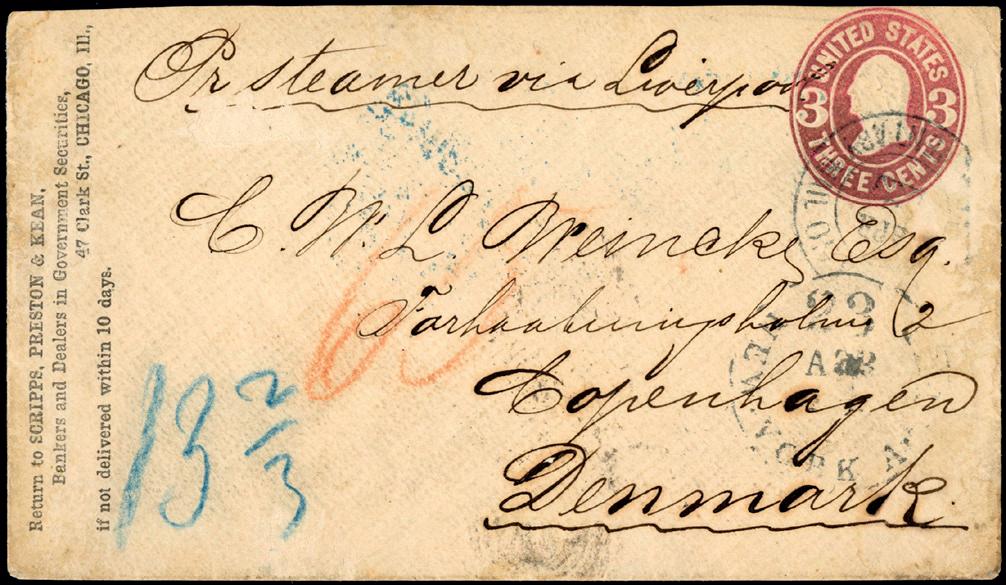 Return to SCRIPPS, PRESTON & KEAN,
Bankers and Dealers in Government Securities,
47 Clark St., CHICAGO, Ill.,
if not delivered within 10 days.
Pr steamer via Liverpool
UNITED STATES
3 3
THREE CENTS
C. W. L. Weincke Esq.
2
Copenhagen
Denmark.
65
13 2/3
23
NEW YORK